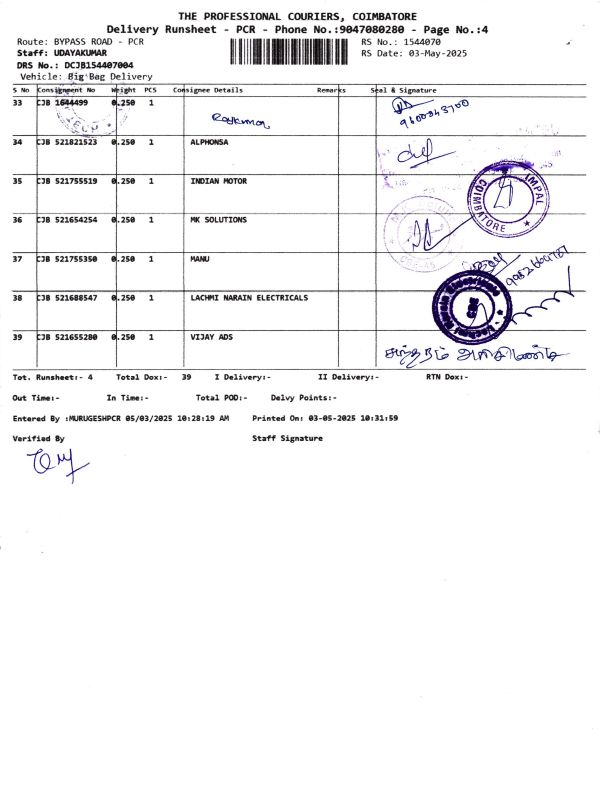 THE PROFESSIONAL COURIERS, COIMBATORE
Delivery Runsheet - PCR - Phone No.:9047080280 - Page No.:4
Route: BYPASS ROAD - PCR RS No.: 1544070
Staff: UDAYAKUMAR RS Date: 03-May-2025
DRS No.: DCJB154407004
Vehicle: Big Bag Delivery
S No Consignment No Weight PCS Consignee Details Remarks Seal & Signature
33 CJB 1644499 0.250 1
Rajkumar
34 CJB 521821523 0.250 1 ALPHONSA
35 CJB 521755519 0.250 1 INDIAN MOTOR
IMPAL
COIMBATORE
36 CJB 521654254 0.250 1 MK SOLUTIONS
37 CJB 521755350 0.250 1 MANU
38 CJB 521688547 0.250 1 LACHMI NARAIN ELECTRICALS
39 CJB 521655280 0.250 1 VIJAY ADS
Tot. Runsheet:- 4 Total Dox:- 39 I Delivery:- II Delivery:- RTN Dox:-
Out Time:- In Time:- Total POD:- Delvy Points:-
Entered By :MURUGESHPCR 05/03/2025 10:28:19 AM Printed On: 03-05-2025 10:31:59
Verified By Staff Signature